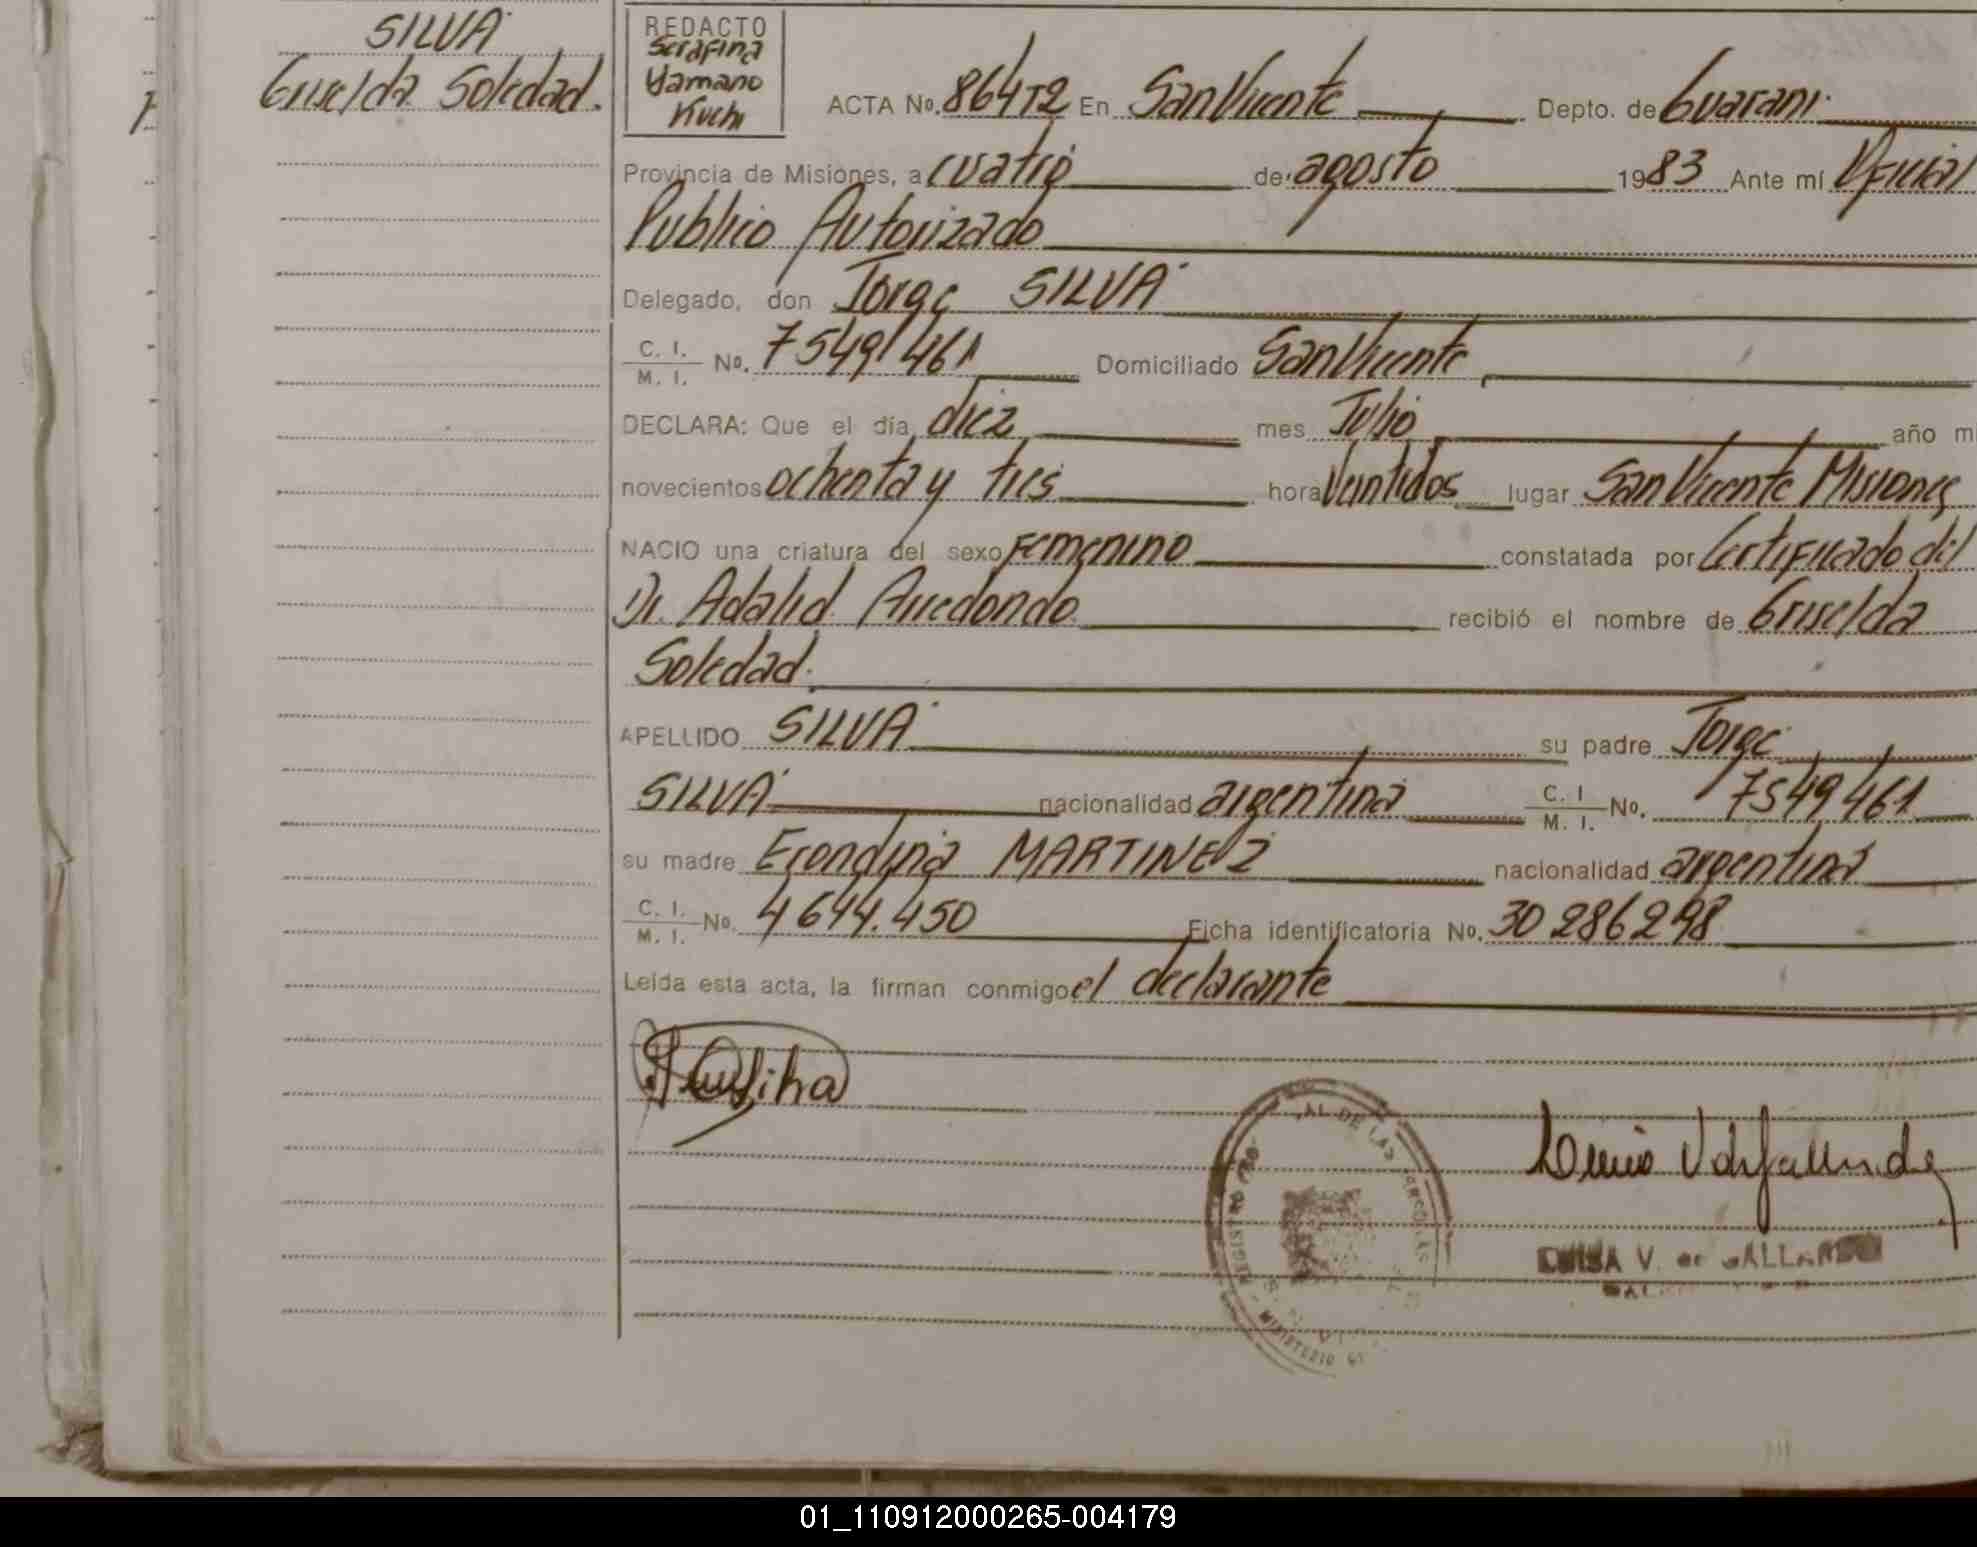 SILVA
Griselda Soledad.
REDACTO
Serafina
Yamano
Kuchi
ACTA No. 864T2 En San Vicente Depto. de Guarani
Provincia de Misiones, a cuatro de agosto 1983 Ante mí Oficial
Publico Autorizado
Delegado, don Jorge SILVA
C. I.
M. I. No. 7549461 Domiciliado San Vicente
DECLARA: Que el día diez mes Julio año m
novecientos ochenta y tres hora Veintidos lugar San Vicente Misiones
NACIO una criatura del sexo Femenino constatada por Certificado del
Dr. Adalid Arredondo recibió el nombre de Griselda
Soledad.
APELLIDO SILVA su padre Jorge
SILVA nacionalidad argentina C. I
M. I. No. 7549461
su madre Erondina MARTINEZ nacionalidad argentina
C. I.
M. I. No. 4644.450 Ficha identificatoria No. 30286298
Leida esta acta, la firman conmigo el declarante
AL DE LAS
REGISTRO
MINISTERIO
LUISA V. de GALLARDO
01_110912000265-004179